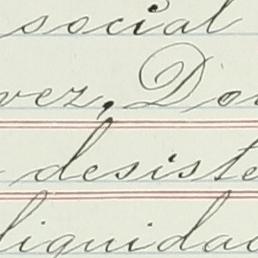 social
vez, Do
desiste
liquidad